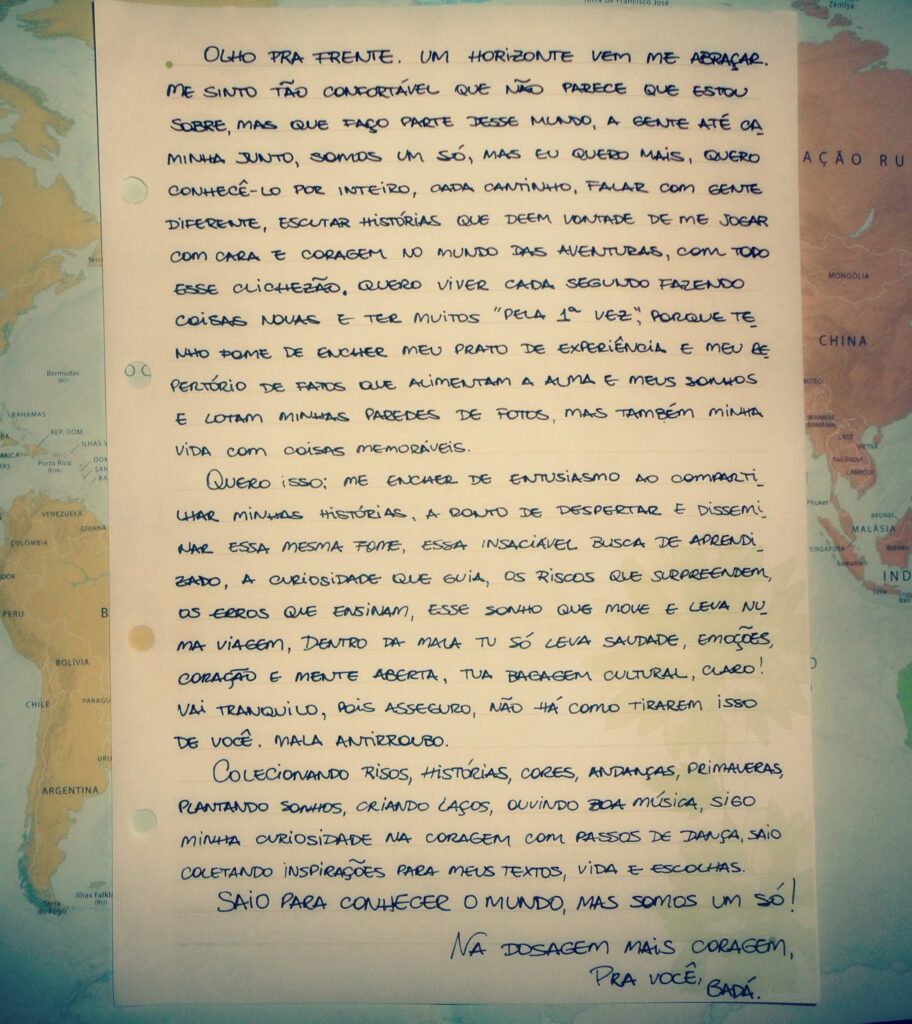 OLHO PRA FRENTE. UM HORIZONTE VEM ME ABRAÇAR.
ME SINTO TÃO CONFORTÁVEL QUE NÃO PARECE QUE ESTOU
SOBRE, MAS QUE FAÇO PARTE DESSE MUNDO, A GENTE ATÉ CA
MINHA JUNTO, SOMOS UM SÓ, MAS EU QUERO MAIS, QUERO
CONHECÊ-LO POR INTEIRO, CADA CANTINHO, FALAR COM GENTE
DIFERENTE, ESCUTAR HISTÓRIAS QUE DEEM VONTADE DE ME JOGAR
COM CARA E CORAGEM NO MUNDO DAS AVENTURAS, COM TODO
ESSE CLICHEZÃO. QUERO VIVER CADA SEGUNDO FAZENDO
COISAS NOVAS E TER MUITOS "PELA 1ª VEZ", PORQUE TE_
NHO FOME DE ENCHER MEU PRATO DE EXPERIÊNCIA E MEU RE
PERTÓRIO DE FATOS QUE ALIMENTAM A ALMA E MEUS SONHOS
E LOTAM MINHAS PAREDES DE FOTOS, MAS TAMBÉM MINHA
VIDA COM COISAS MEMORÁVEIS.
QUERO ISSO; ME ENCHER DE ENTUSIASMO AO COMPARTI_
LHAR MINHAS HISTÓRIAS, A PONTO DE DESPERTAR E DISSEMI_
NAR ESSA MESMA FOME, ESSA INSACIÁVEL BUSCA DE APRENDI_
ZADO, A CURIOSIDADE QUE GUIA, OS RISCOS QUE SURPREENDEM,
OS ERROS QUE ENSINAM, ESSE SONHO QUE MOVE E LEVA NU_
MA VIAGEM, DENTRO DA MALA TU SÓ LEVA SAUDADE, EMOÇÕES,
CORAÇÃO E MENTE ABERTA, TUA BAGAGEM CULTURAL, CLARO!
VAI TRANQUILO, POIS ASSEGURO, NÃO HÁ COMO TIRAREM ISSO
DE VOCÊ. MALA ANTIRROUBO.
COLECIONANDO RISOS, HISTÓRIAS, CORES, ANDANÇAS, PRIMAVERAS,
PLANTANDO SONHOS, CRIANDO LAÇOS, OUVINDO BOA MÚSICA, SIGO
MINHA CURIOSIDADE NA CORAGEM COM PASSOS DE DANÇA, SAIO
COLETANDO INSPIRAÇÕES PARA MEUS TEXTOS, VIDA E ESCOLHAS.
SAIO PARA CONHECER O MUNDO, MAS SOMOS UM SÓ!
NA DOSAGEM MAIS CORAGEM,
PRA VOCÊ, BADÁ.
Bermudas
(RU)
BAHAMAS
REP. DOM.
ILHAS V
Porto Rico
(EUA)
VENEZUELA
GUIANA
COLÔMBIA
PERU
B
BOLÍVIA
CHILE
PARAGU
URU
ARGENTINA
Terra
do Fogo
Ilhas Falkl
(RU)
Terra de Francisco José
Zemlya
AÇÃO RU
MONGÓLIA
CHINA
BUTÃO
LAOS
VIETNÃ
TAILÂNDIA
CAMBOJA
Phuket
BRUNEI
MALÁSIA
SINGAPURA
Sumatra
Borneo
IND
Java
Bali